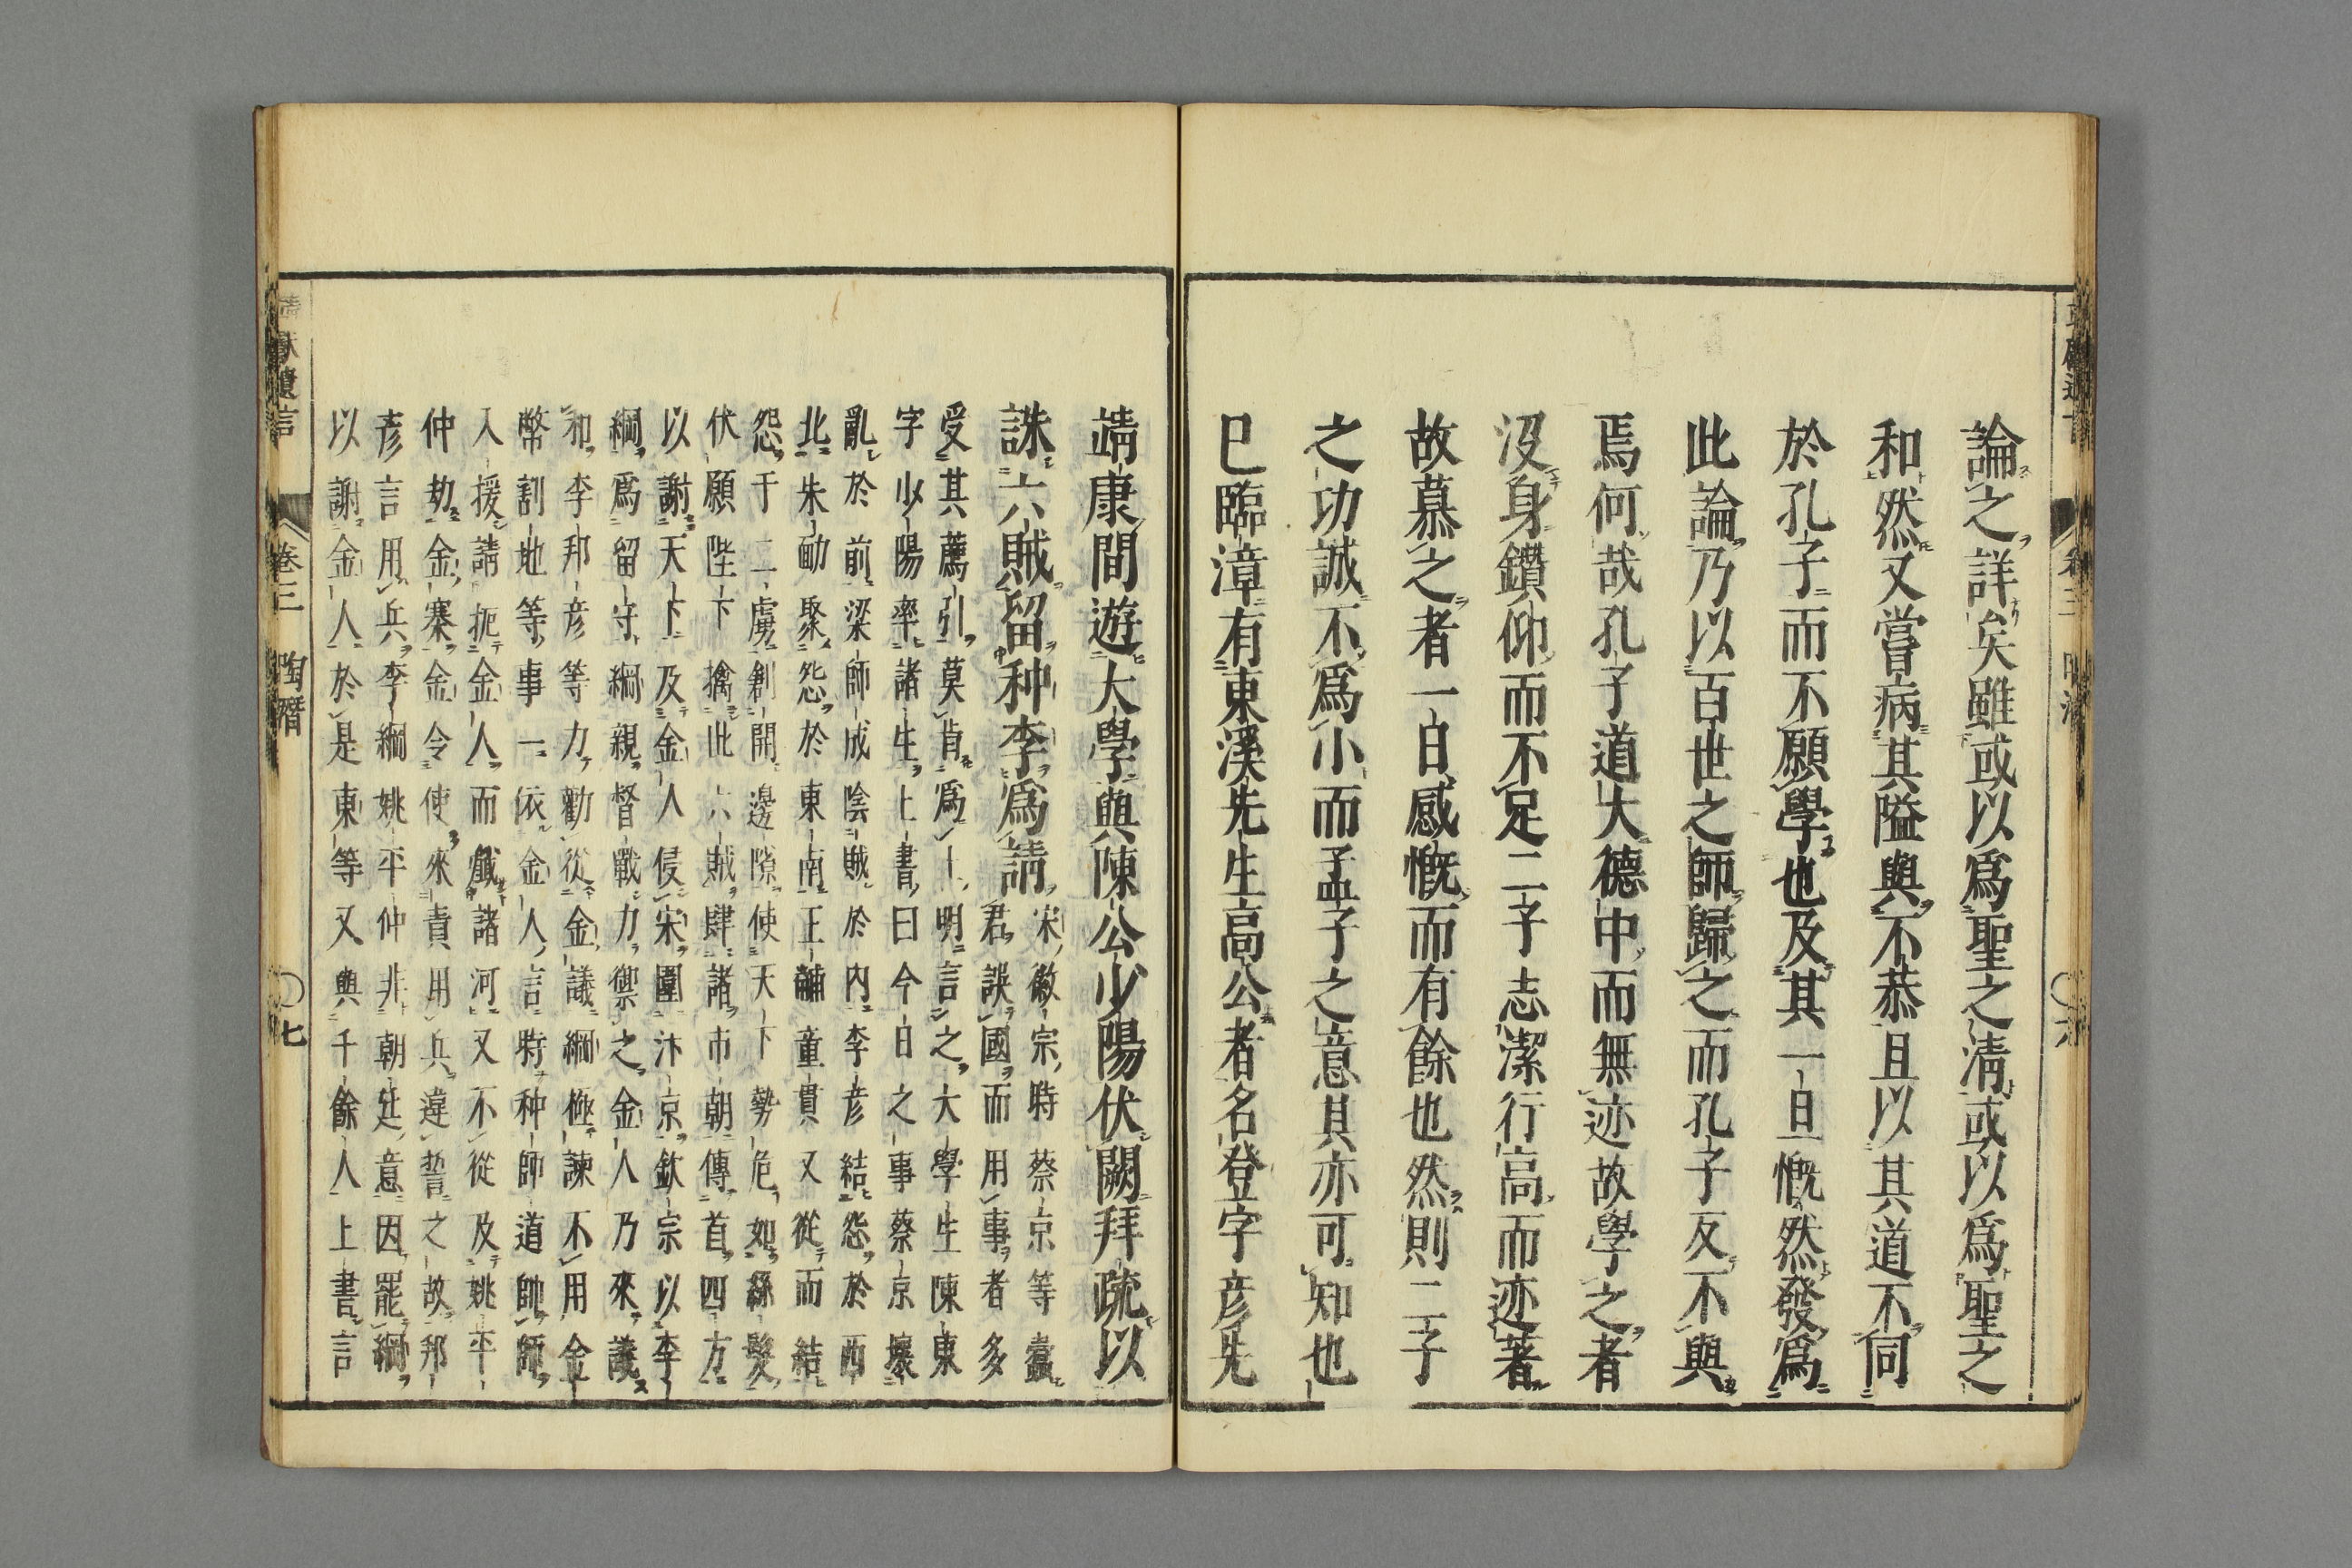 論之詳矣雖或以爲聖之淸或以爲聖之
和然又嘗病其隘與不恭且以其道不同
於孔子而不願學也及其一旦慨然發爲
此論乃以百世之師歸之而孔子反不與
焉何哉孔子道大德中而無迹故學之者
沒身鑽仰而不足二子志潔行高而迹著
故慕之者一日感慨而有餘也然則二子
之功誠不爲小而孟子之意其亦可知也
已臨漳有東溪先生高公者名登字彦先
靖康間遊大學與陳公少陽伏闕拜疏以
誅六賊留种李爲請宋徽宗時蔡京等蠹
君誤國而用事者多
受其薦引莫肯爲上明言之大學生陳東
字少陽率諸生上書曰今日之事蔡京壞
亂於前梁師成陰賊於内李彦結怨於西
北朱勔聚怨於東南王黼童貫又從而結
怨于二虜創開邊隙使天下勢危如絲髮
伏願陛下擒此六賊肆諸市朝傳首四方
以謝天下及金人侵宋圍汴京欽宗以李
綱爲留守綱親督戰力禦之金人乃來議
和李邦彦等力勸從金議綱極諫不用金
幣割地等事一依金人言時种師道帥師
入援請扼金人而殲諸河又不從及姚平
仲劫金寨金令使來責用兵違誓之故邦
彦言用兵李綱姚平仲非朝廷意因罷綱
以謝金人於是東等又與千餘人上書言
遺言
卷三
陶潛
七